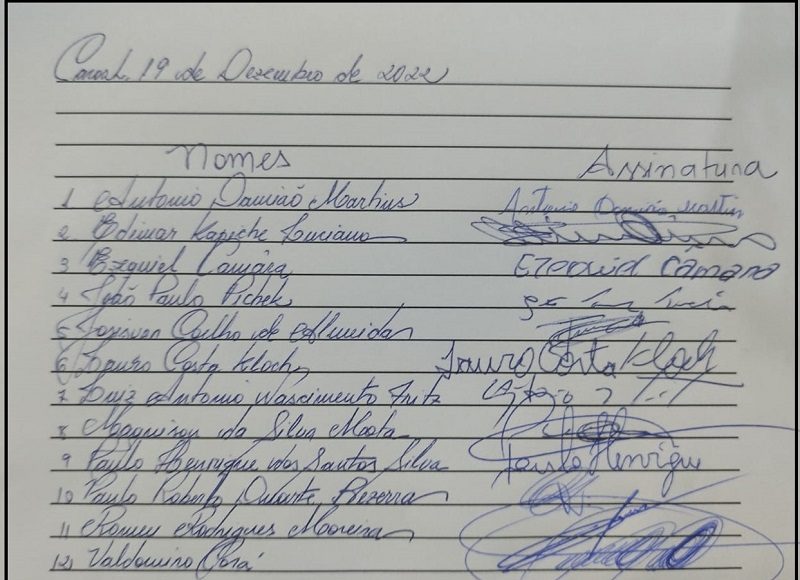 19 de Dezembro de 2022
Nomes Assinatura
1 Antonio Damião Martins Antonio Damião Martins
2 Edimar Kapiche Luciano
3 Ezequiel Camâra Ezequiel Câmara
4 João Paulo Pichek
5 Coelho de Almeida
6 Lauro Costa Kloch Lauro Costa Kloch
7 Luiz Antonio Nascimento Fritz
8 da Silva Mota
9 Paulo Henrique dos Santos Silva Paulo Henrique
10 Paulo Roberto Duarte Bezerra
11 Roney Rodrigues Moreira
12 Valdomiro Corá